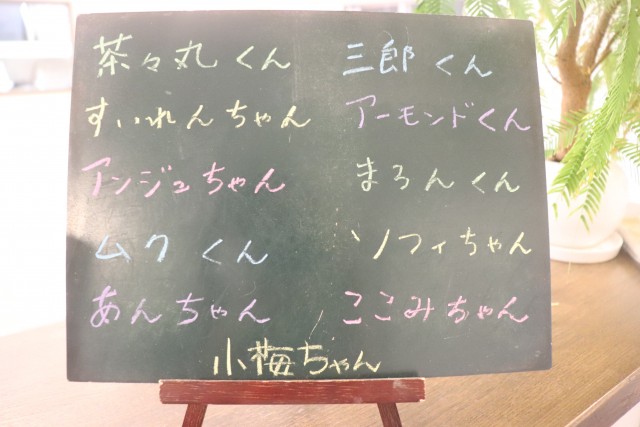 茶々丸くん 三郎くん
すいれんちゃん アーモンドくん
アンジュちゃん まろんくん
ムクくん ソフィちゃん
あんちゃん ここみちゃん
小梅ちゃん